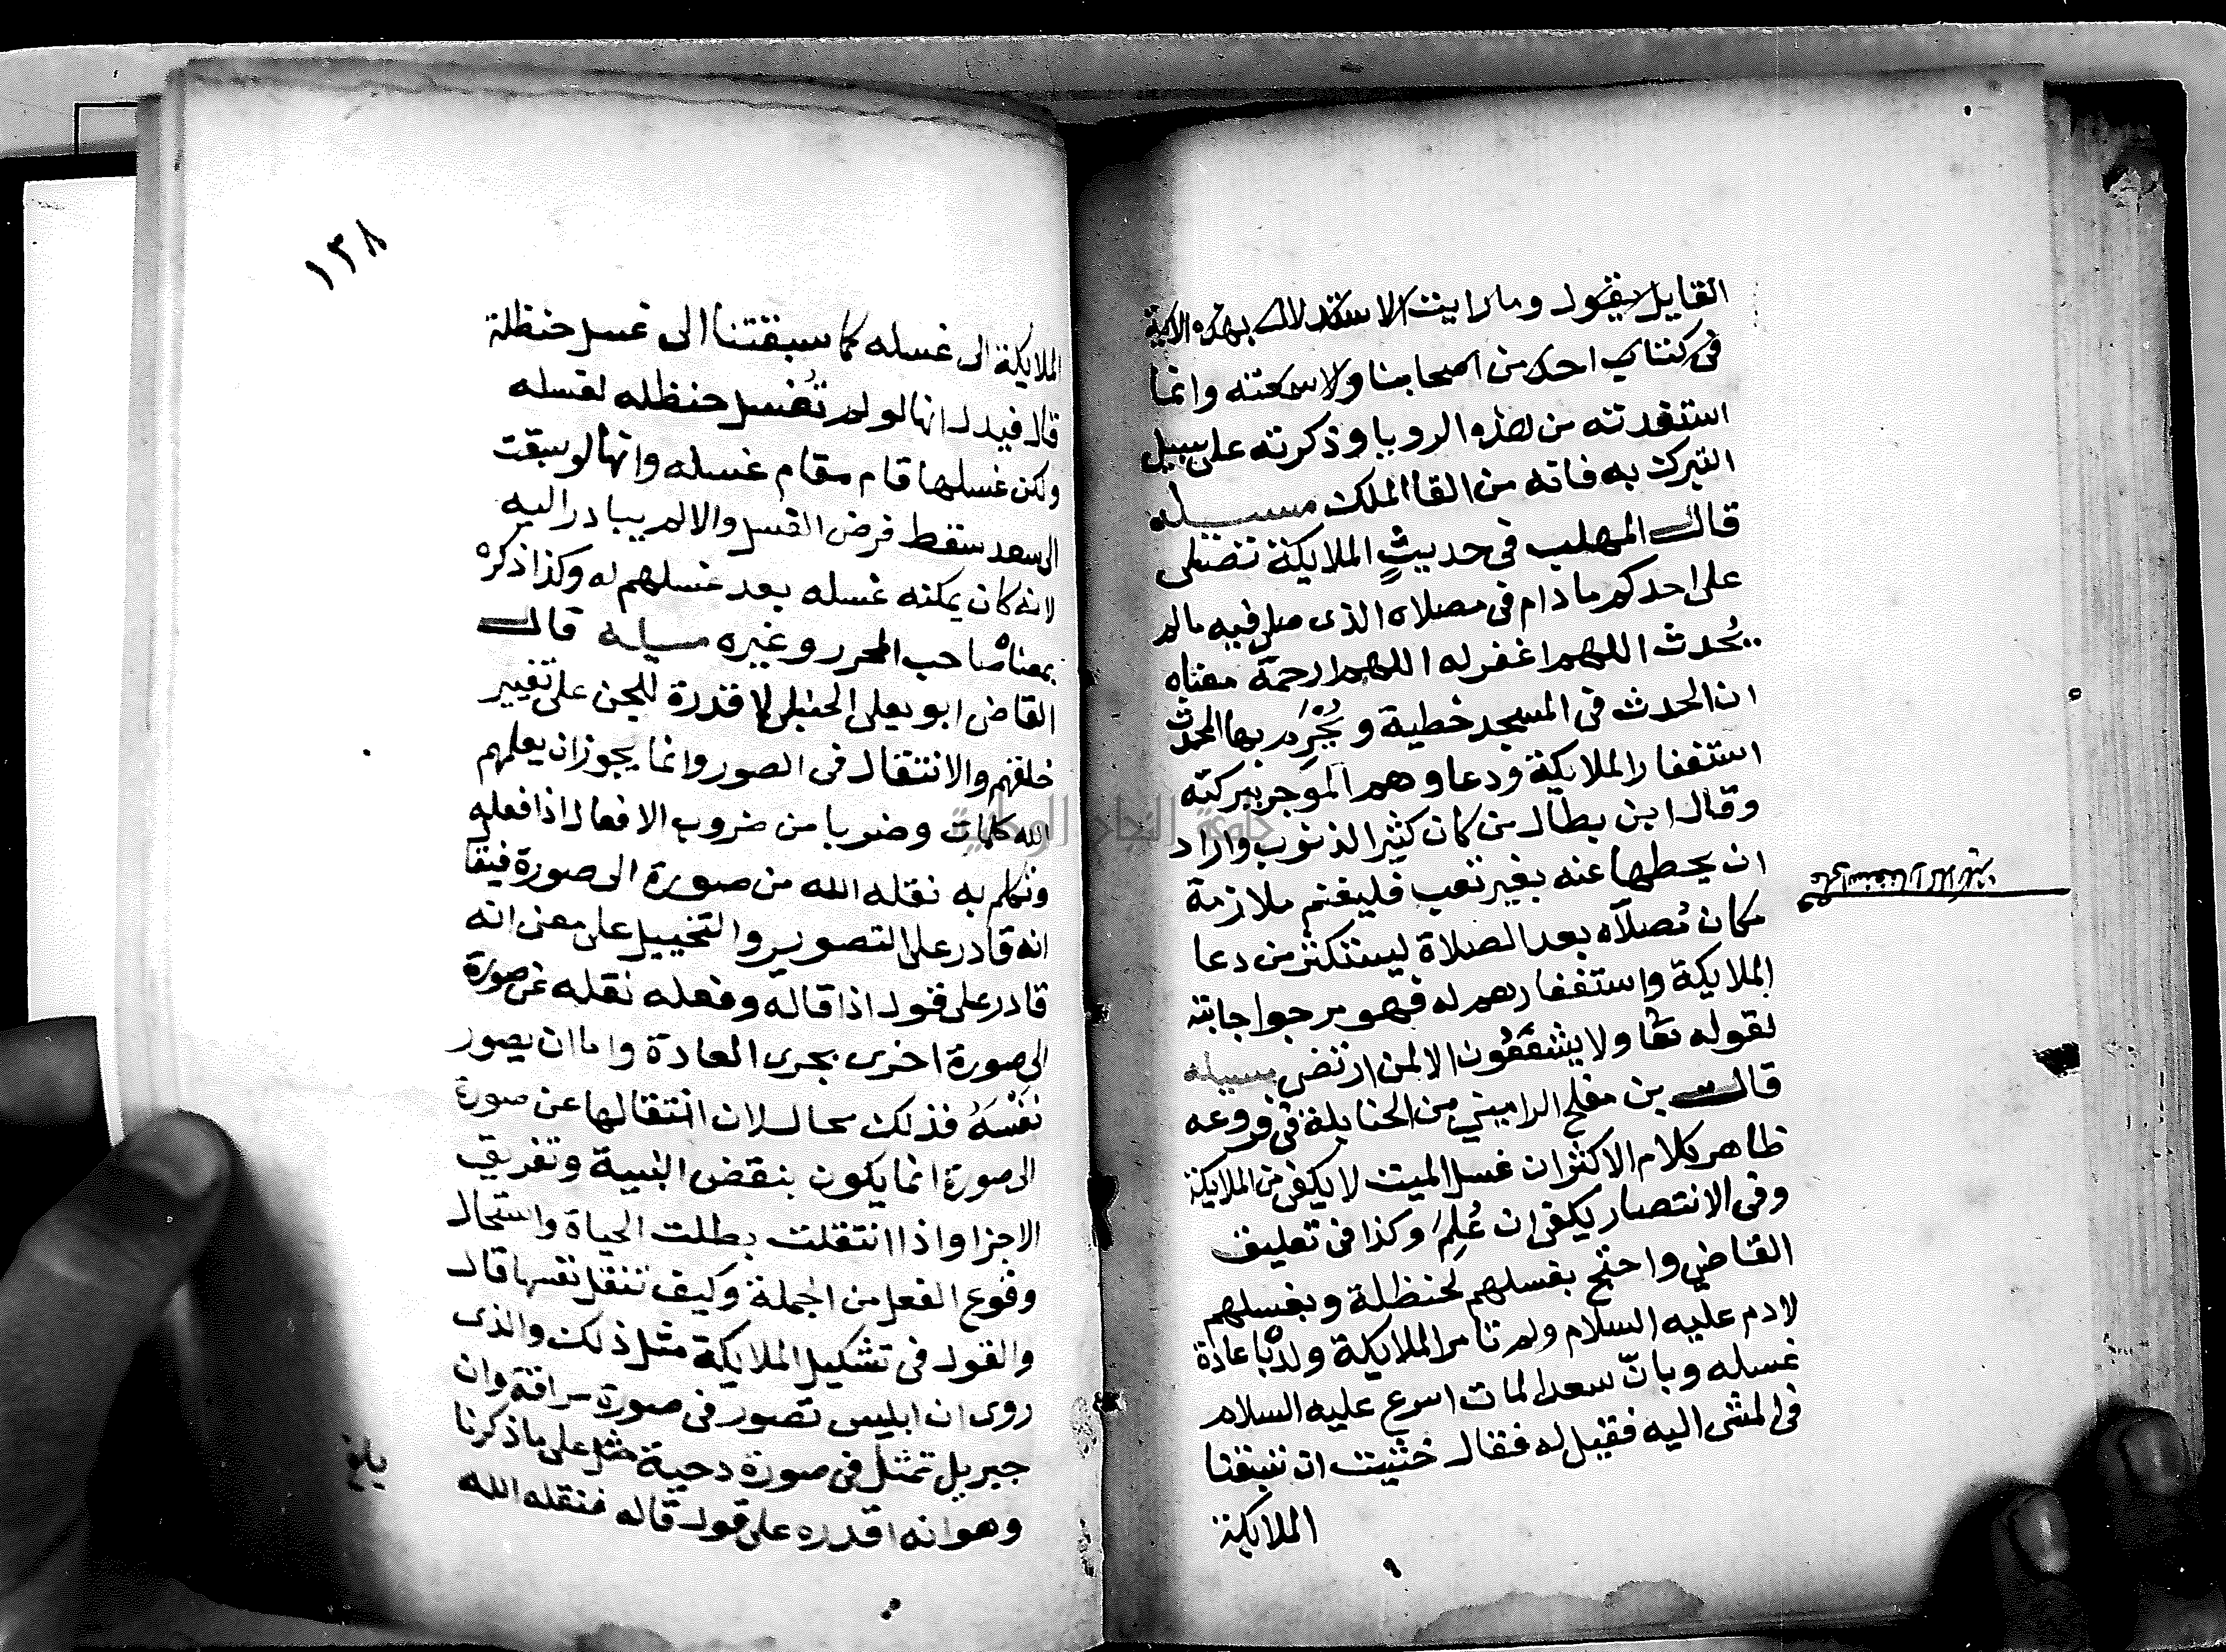 القايل يقول وما رايت الاستدلال بهذه الاية
فى كتاب احد من اصحابنا ولا سمعته وانما
استفدته من هذه الرويا وذكرته على سبيل
التبرك به فانه من القا الملك مسيلة
قال المهلب فى حديث الملايكة تصلى
على احدكم ما دام فى مصلاه الذى صلى فيه ما لم
يُحدث اللهم اغفر له اللهم ارحمة معناه
ان الحدث فى المسجد خطية ويُحْرَم بها المحدث
استغفار الملايكة ودعاوهم المرجو بركته
وقال ابن بطال من كان كثير الذنوب واراد
ان يحطها عنه بغير تعب فليغتم ملازمة
مكان مُصلاه بعد الصلاة ليستكثر من دعا
الملايكة واستغفارهم له فهو مرجوا جابته
لقوله تعا ولا يشفعون الا لمن ارتضى مسيله
قال بن مفلح الرامينى من الحنابلة فى فروعه
ظاهر كلام الاكثر ان غسل الميت لا يكفى من الملايكة
وفى الانتصار يكفى ان عُلِمَ وكذا فى تعليق
القاضى واحتج بغسلهم لحنظلة وبغسلهم
لادم عليه السلام ولم تامر الملايكة ولده باعادة
غسله وبانّ سعدا لما مات اسرع عليه السلام
فى المشى اليه فقيل له فقال خشيت ان تسبقنا
الملايكة
١٣٨
الملايكة الى غسله كما سبقتنا الى غسل حنظلة
قال فيدل انها لو لم تُغسل حنظله لغسله
ولكن غسلها قام مقام غسله وانها لو سبقت
الى سعد سقط فرض الغسل والا لم يبادر اليه
لانه كان يمكنه غسله بعد غسلهم له وكذا ذكره
بمعناه صاحب المحرر وغيره مسيله قال
القاضى ابو يعلى الحنبلى لا قدرة للجن على تغيير
خلقهم والانتقال فى الصور وانما يجوز ان يعلمهم
الله كلمات وضربا من ضروب الافعال اذا فعله
وتكلم به نقله الله من صورة الى صورة فيقا
انه قادر على التصوير والتخييل على معنى انه
قادر على قول اذا قاله وفعله نقله عن صورة
الى صورة اخرى بجرى العادة واما ان يصور
نَفْسَهُ فذلك محال لان انتقالها عن صورة
الى صورة انما يكون بنقض البنية وتفريق
الاجزا واذا انتقلت بطلت الحياة واستحال
وقوع الفعل من الجملة وكيف تنقل نفسها قال
والقول فى تشكيل الملايكة مثل ذلك والذى
روى ان ابليس تصور فى صورة سراقة وان
جبريل تمثل فى صورة دحية مثل على ما ذكرنا
وهو انه اقدره على قول قاله فنقله الله
بلغ